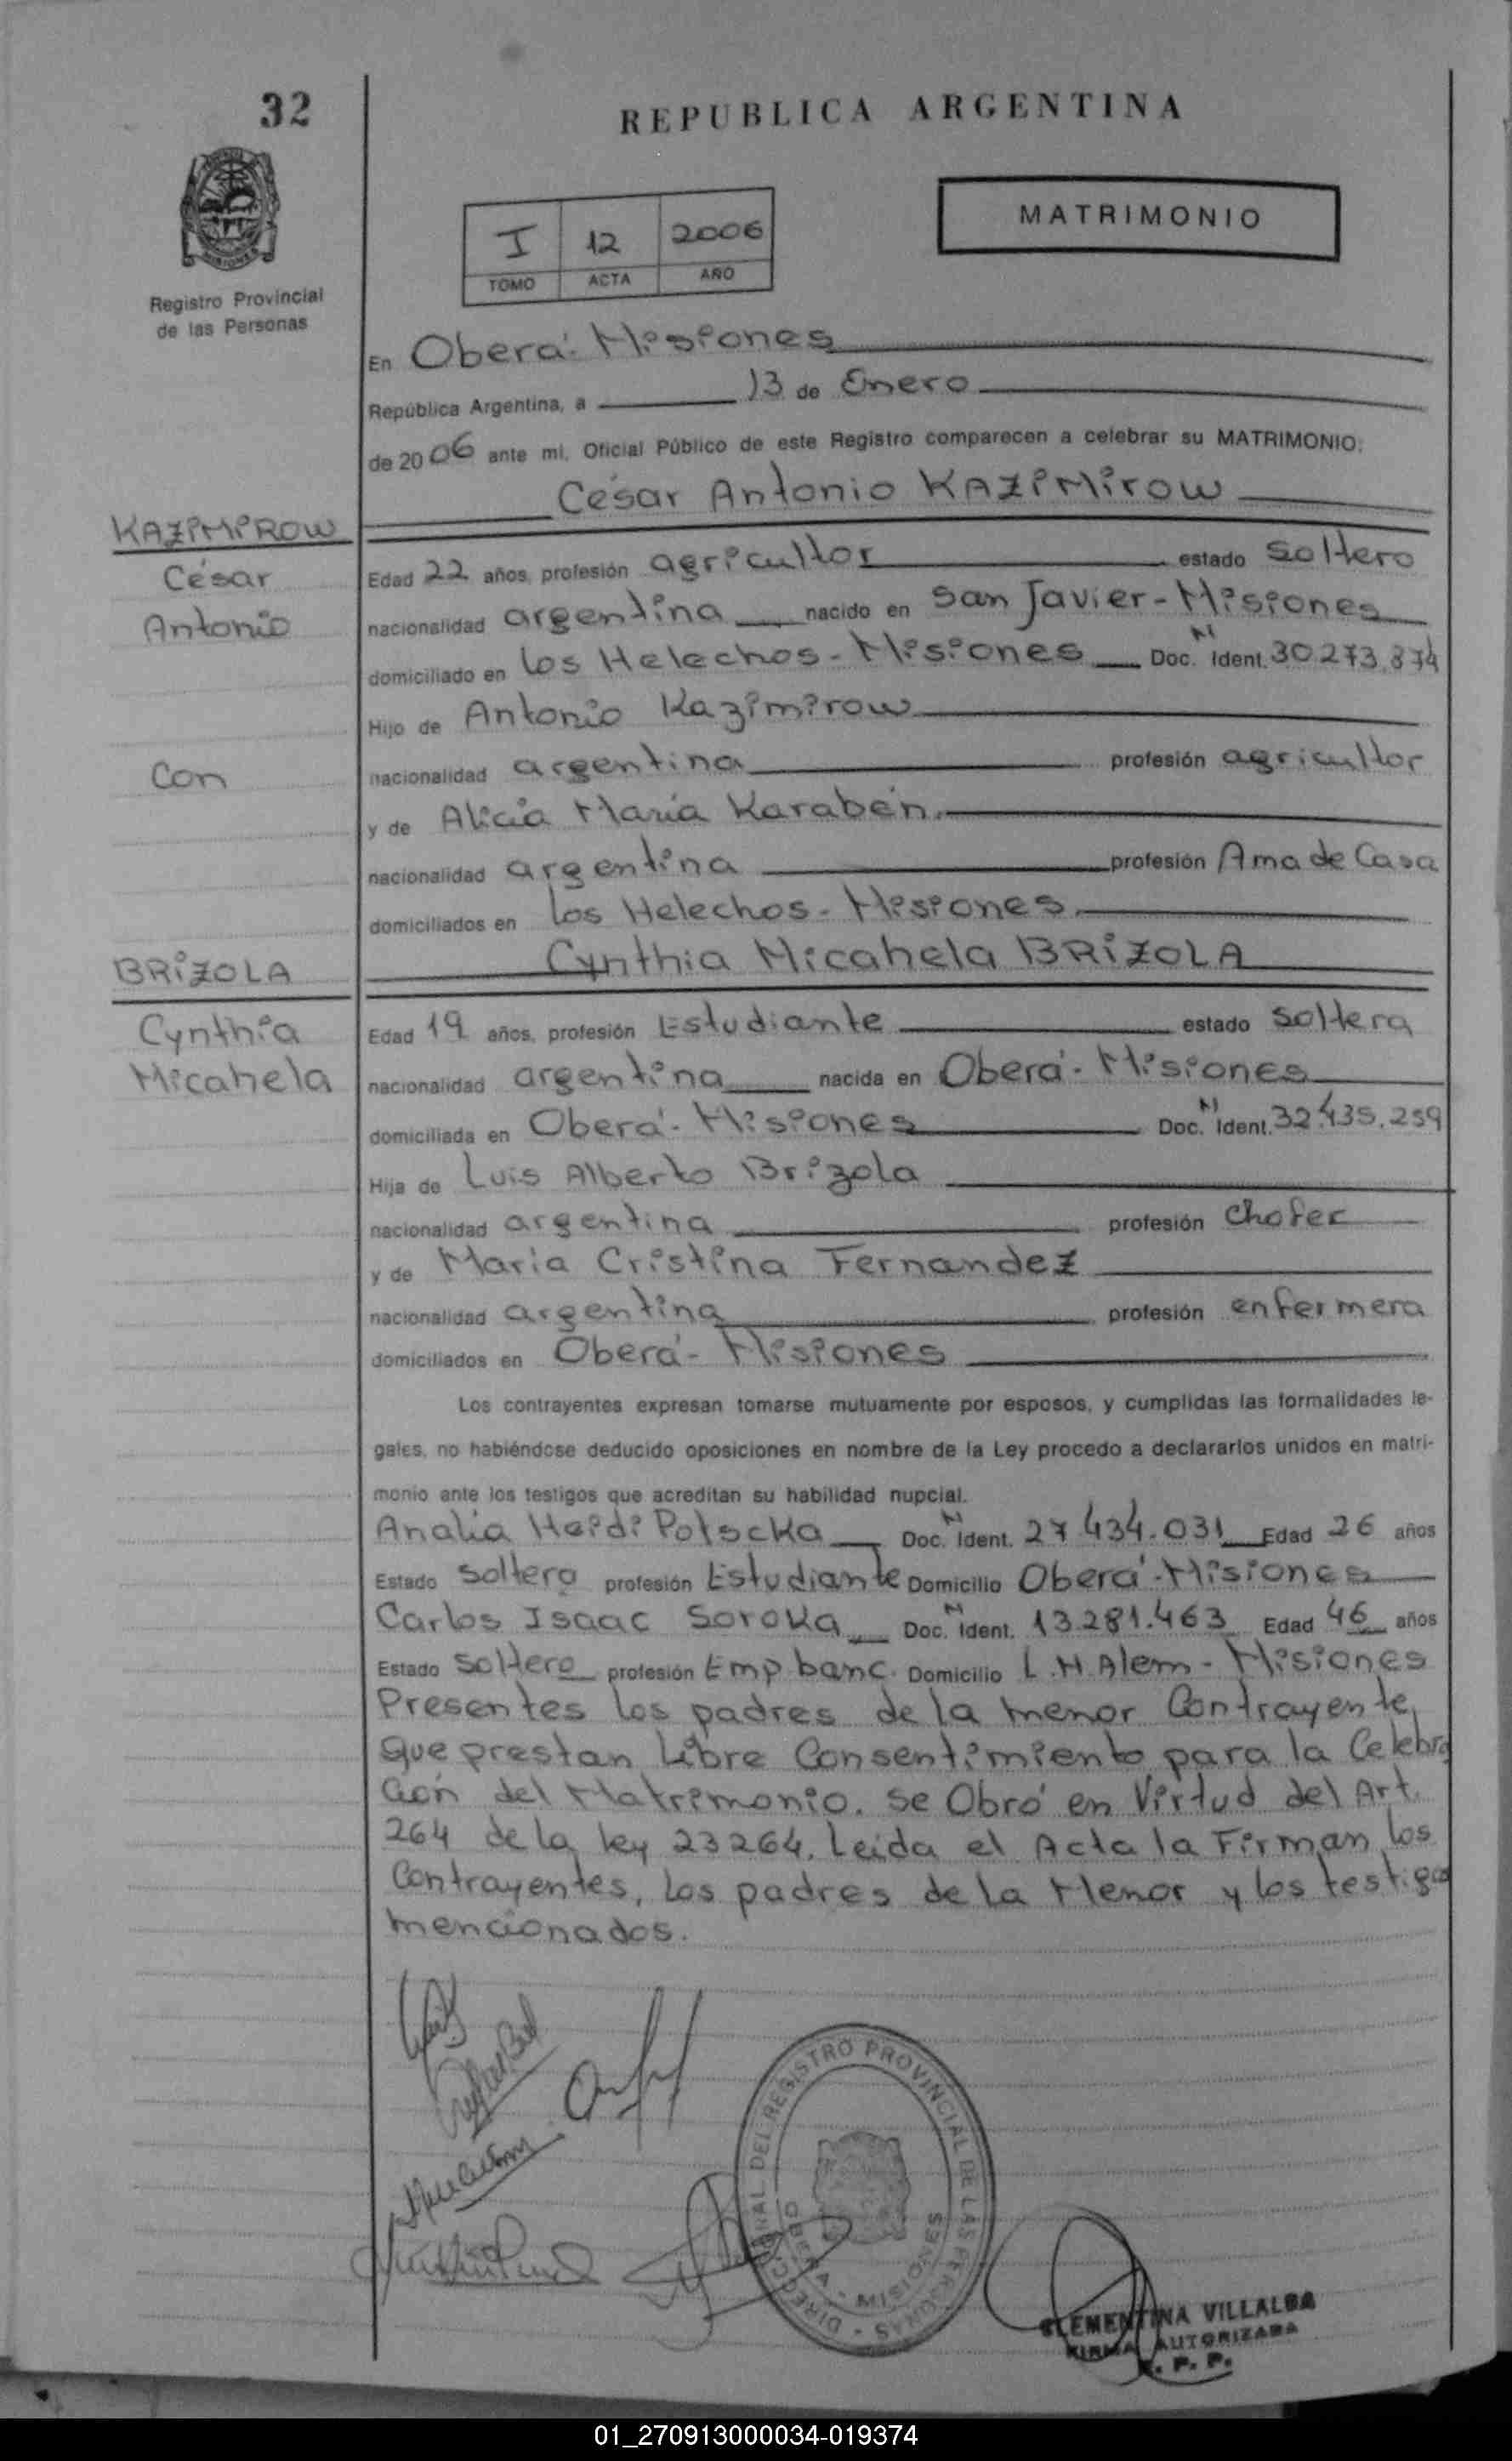 32
REPUBLICA ARGENTINA
MATRIMONIO
I 12 2006
TOMO ACTA AÑO
Registro Provincial
de las Personas
En Oberá - Misiones
República Argentina, a 13 de Enero
de 2006 ante mi, Oficial Público de este Registro comparecen a celebrar su MATRIMONIO:
César Antonio KAZiMiROW
KAZiMiROW
César
Antonio
Edad 22 años, profesión agricultor estado soltero
nacionalidad argentina nacido en San Javier - Misiones
domiciliado en Los Helechos - Misiones Doc. N Ident. 30.273.874
Hijo de Antonio Kazimirow
nacionalidad argentina profesión agricultor
Con
y de Alicia María Karabén.
nacionalidad argentina profesión Ama de Casa
domiciliados en Los Helechos - Misiones.
Cynthia Micahela BRiZOLA
BRiZOLA
Cynthia
Micahela
Edad 19 años, profesión Estudiante estado soltera
nacionalidad argentina nacida en Oberá - Misiones
domiciliada en Oberá - Misiones Doc. N Ident. 32.435.259
Hija de Luis Alberto Brizola
nacionalidad argentina profesión chofer
y de María Cristina Fernandez
nacionalidad argentina profesión enfermera
domiciliados en Oberá - Misiones
Los contrayentes expresan tomarse mutuamente por esposos, y cumplidas las formalidades le-
gales, no habiéndose deducido oposiciones en nombre de la Ley procedo a declararlos unidos en matri-
monio ante los testigos que acreditan su habilidad nupcial.
Analía Heidi Potscka Doc. N Ident. 27.434.031 Edad 26 años
Estado soltera profesión Estudiante Domicilio Oberá - Misiones
Carlos Isaac Soroka Doc. N Ident. 13.281.463 Edad 46 años
Estado soltero profesión Emp. banc. Domicilio L.N.Alem - Misiones
Presentes los padres de la menor Contrayente,
que prestan Libre Consentimiento para la Celebra
ción del Matrimonio. Se Obró en Virtud del Art.
264 de la ley 23264. Leída el Acta la Firman los
Contrayentes, Los padres de la Menor y los testigos
mencionados.
DIRECC. GRAL. DEL REGISTRO PROVINCIAL DE LAS PERSONAS
OBERA - MISIONES
CLEMENTINA VILLALBA
FIRMA AUTORIZADA
R. P. P.
01_270913000034-019374